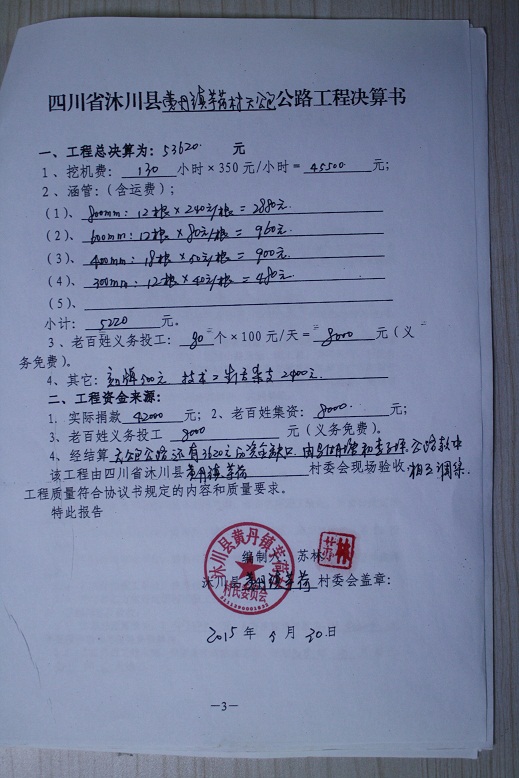 四川省沐川县黄丹镇芋荷村天公包公路工程决算书
一、工程总决算为：53620. 元
1、挖机费：130 小时×350元/小时＝45500 元；
2、涵管：（含运费）；
（1）、800mm：12根×240元/根＝2880元.
（2）、600mm：12根×80元/根＝960元.
（3）、400mm：18根×50元/根＝900元.
（4）、300mm：12根×40元/根＝480元.
（5）、
小计：5220 元。
3、老百姓义务投工：80 个×100元/天＝8000 元（义
务免费）。
4、其它：500元 技术 2400元.
二、工程资金来源：
1. 实际捐款 42000 元；2、老百姓集资：8000. 元；
3、老百姓义务投工 8000 元（义务免费）。
4、经结算天公包公路还有3620元的资金缺口. 公路款中
该工程由四川省沐川县黄丹镇芋荷 村委会现场验收，相互调集.
工程质量符合协议书规定的内容和质量要求。
特此报告
编制人：苏林
苏林
沐川县黄丹镇芋荷 村委会盖章：
沐川县黄丹镇芋荷村
村民委员会
2015 年 月 30 日
—3—